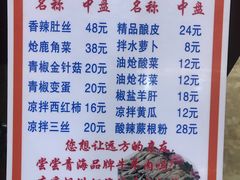 名称 中盘 名称 中盘
香辣肚丝 48元 精品酿皮 24元
炝鹿角菜 38元 拌水萝卜 8元
青椒金针菇 20元 油炝酸菜 12元
青椒变蛋 20元 油炝花菜 12元
凉拌西红柿 16元 椒盐羊肝 18元
凉拌三丝 20元 凉拌黄瓜 12元
酸辣蕨根粉 28元
您想让远方的亲友
尝尝青海品牌牛羊肉吗